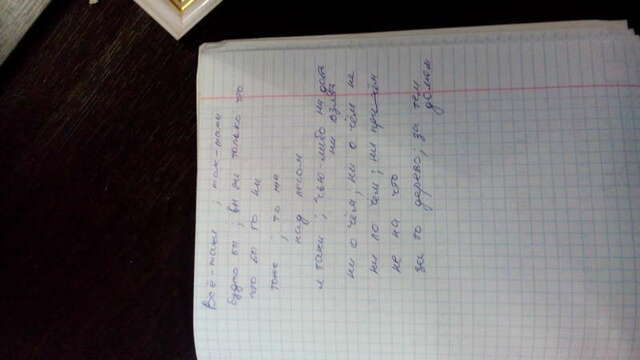 Всё-таки ; так-таки
будто бы ; вы же только что
что бы то ни
тоже ; то же
над лесом
и таки ; чью-либо ни дать
ни взять
ни о чём ; ни о чём не
ни по чем ; ни при чём
не на что
за то дерево ; за тем
домом